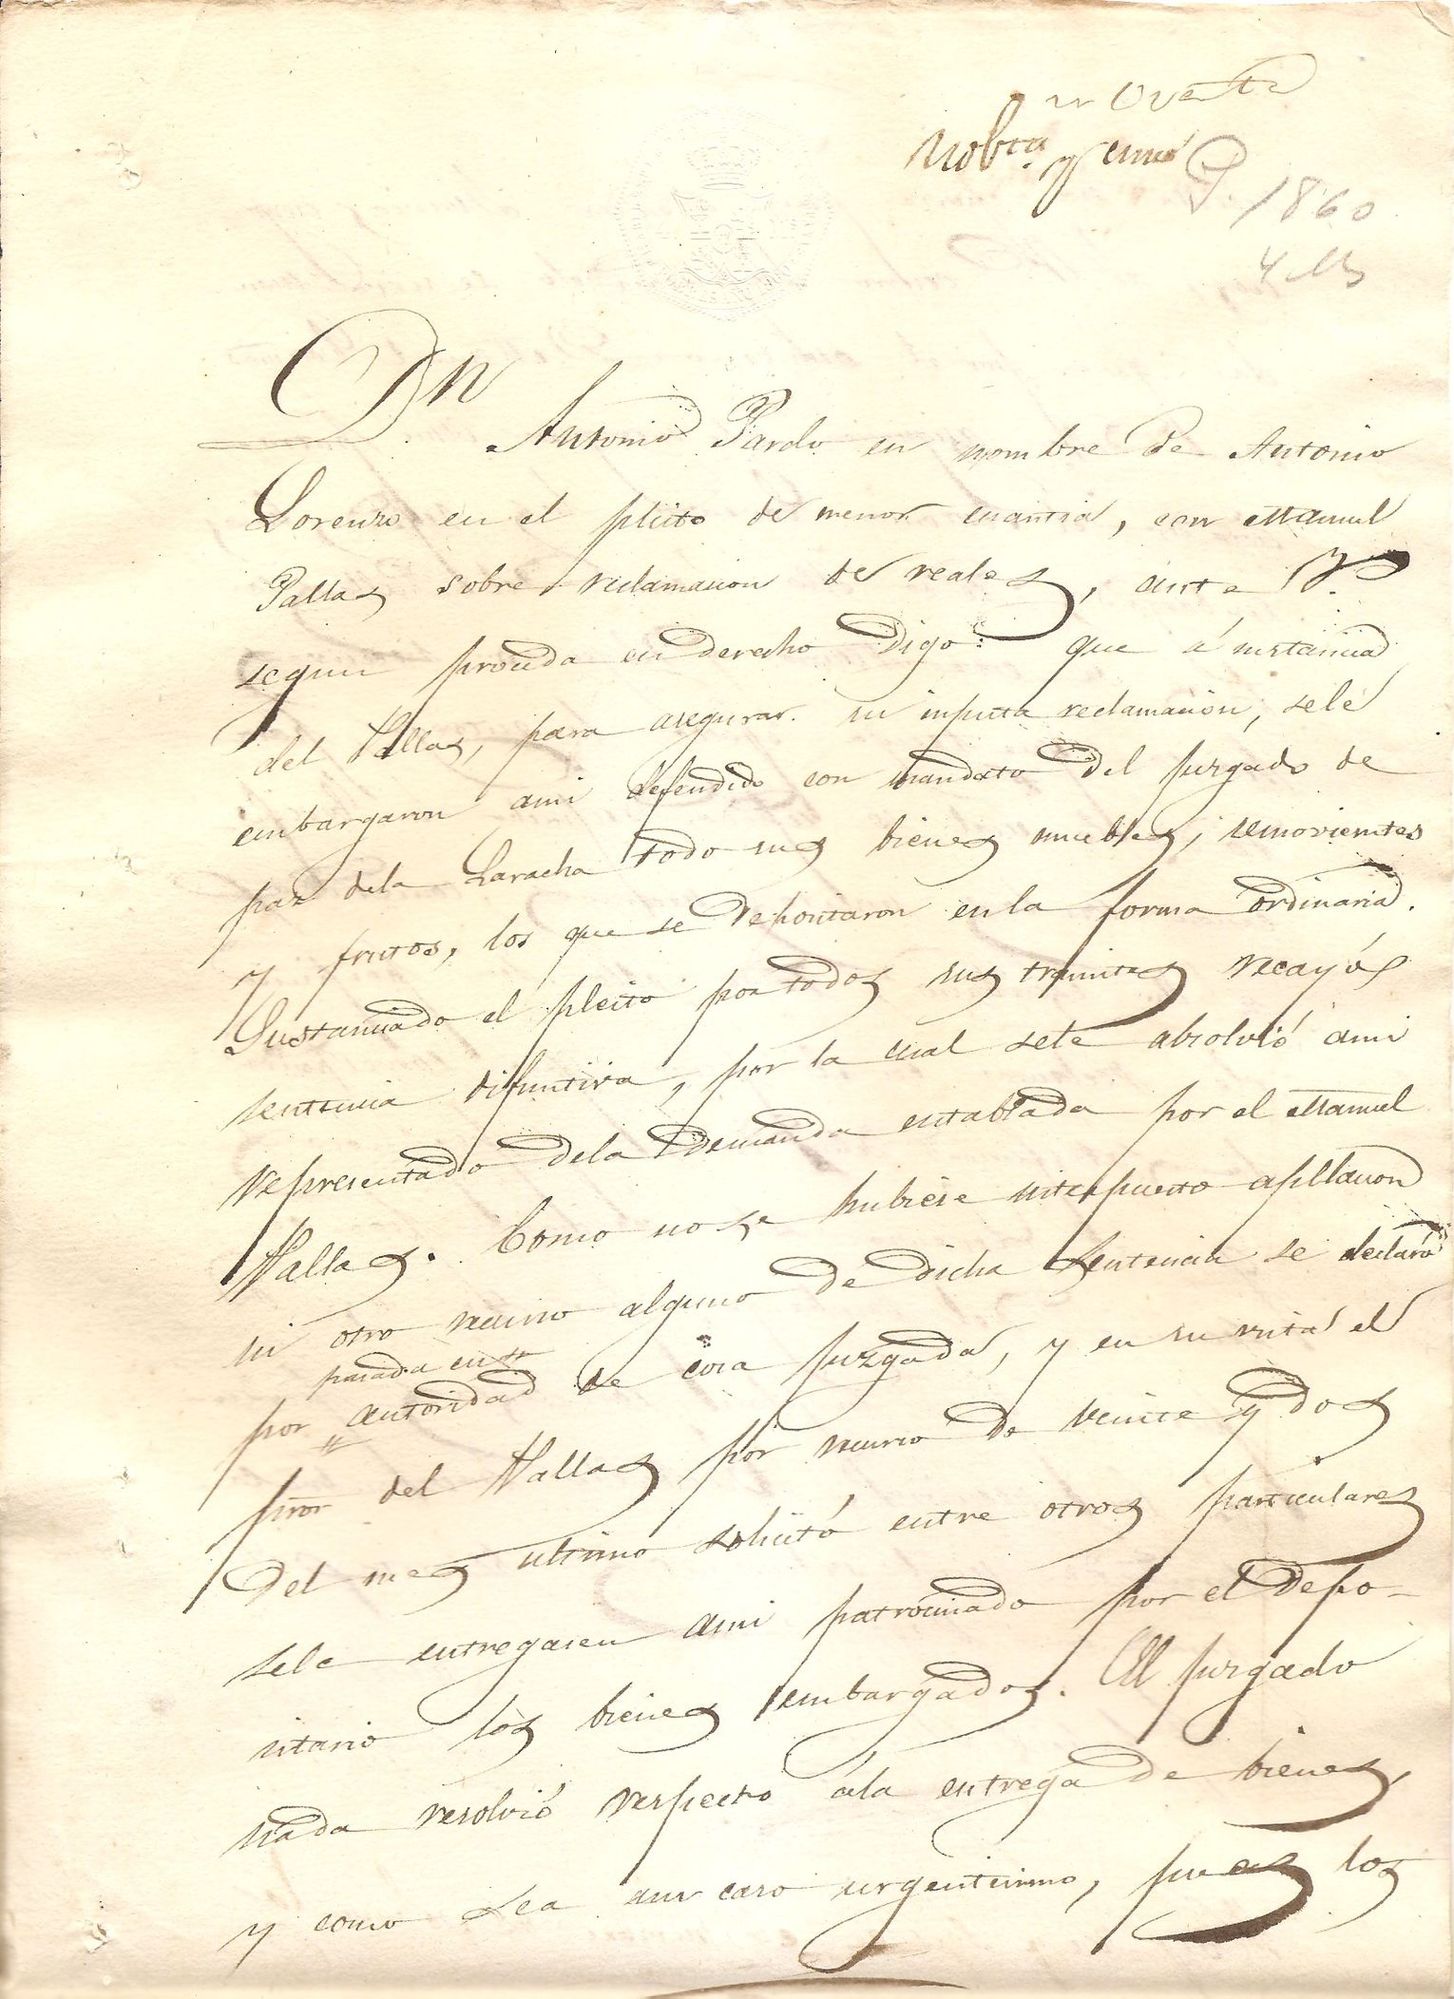 Nobre. y emõ
P. 1860
Dn Antonio Pardo en nombre de Antonio
Lorenzo en el pleito de menor cuantia, con Manuel
Pallas sobre reclamacion de reales, ante V.
segun proceda en derecho Digo: que á instancia
del Pallas, para asegurar su injusta reclamacion, se le
embargaron ami defendido con mandato del juzgado de
paz dela Laracha todo sus bienes muebles, semovientes
y frutos, los que se depositaron en la forma ordinaria.
Sustanciado el pleito por todos sus tramites recayó
sentencia difinitiva, por la cual sele absolvió ami
representado dela Demanda entablada por el Manuel
Pallas. Como no se hubiese interpuesto apellacion
ni otro recurso alguno de dicha sentencia se declaró
pasada en
por autoridad de cosa juzgada, y en su vista el
pror del Pallas por recurso de veinte y dos
del mes ultimo solicitó entre otros particulares
sele entregasen ami patrocinado por el depo-
sitario los bienes embargados. El juzgado
nada resolvió respecto ála entrega de bienes,
y como sea un caso urgentisimo, pues los